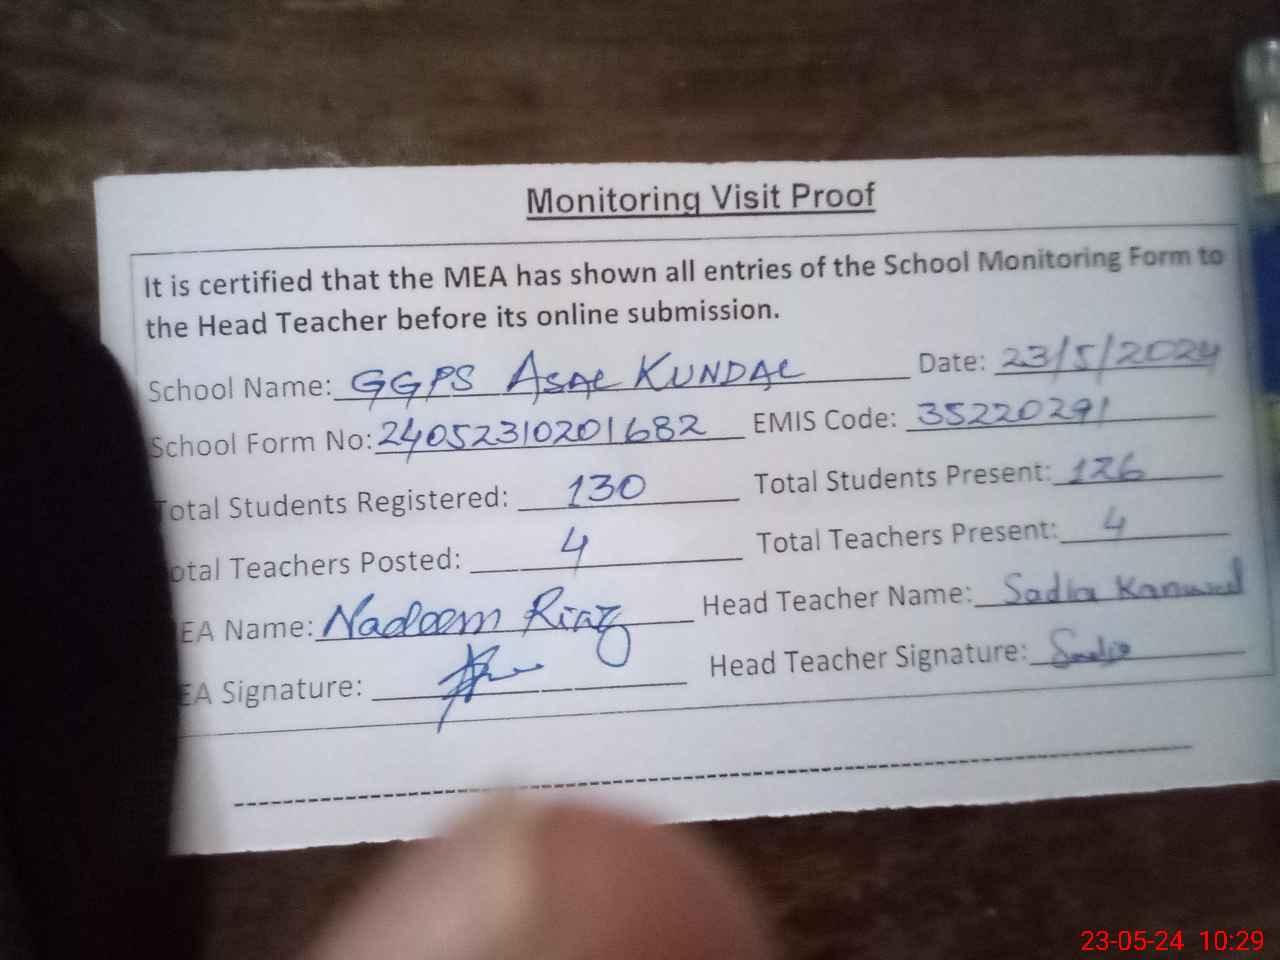 Monitoring Visit Proof
It is certified that the MEA has shown all entries of the School Monitoring Form to
the Head Teacher before its online submission.
School Name: GGPS ASAL KUNDAL Date: 23/5/2024
School Form No: 24052310201682 EMIS Code: 35220291
Total Students Registered: 130 Total Students Present: 126
otal Teachers Posted: 4 Total Teachers Present: 4
EA Name: Nadeem Riaz Head Teacher Name: Sadia Kanwal
EA Signature: Head Teacher Signature: Sadia
23-05-24 10:29